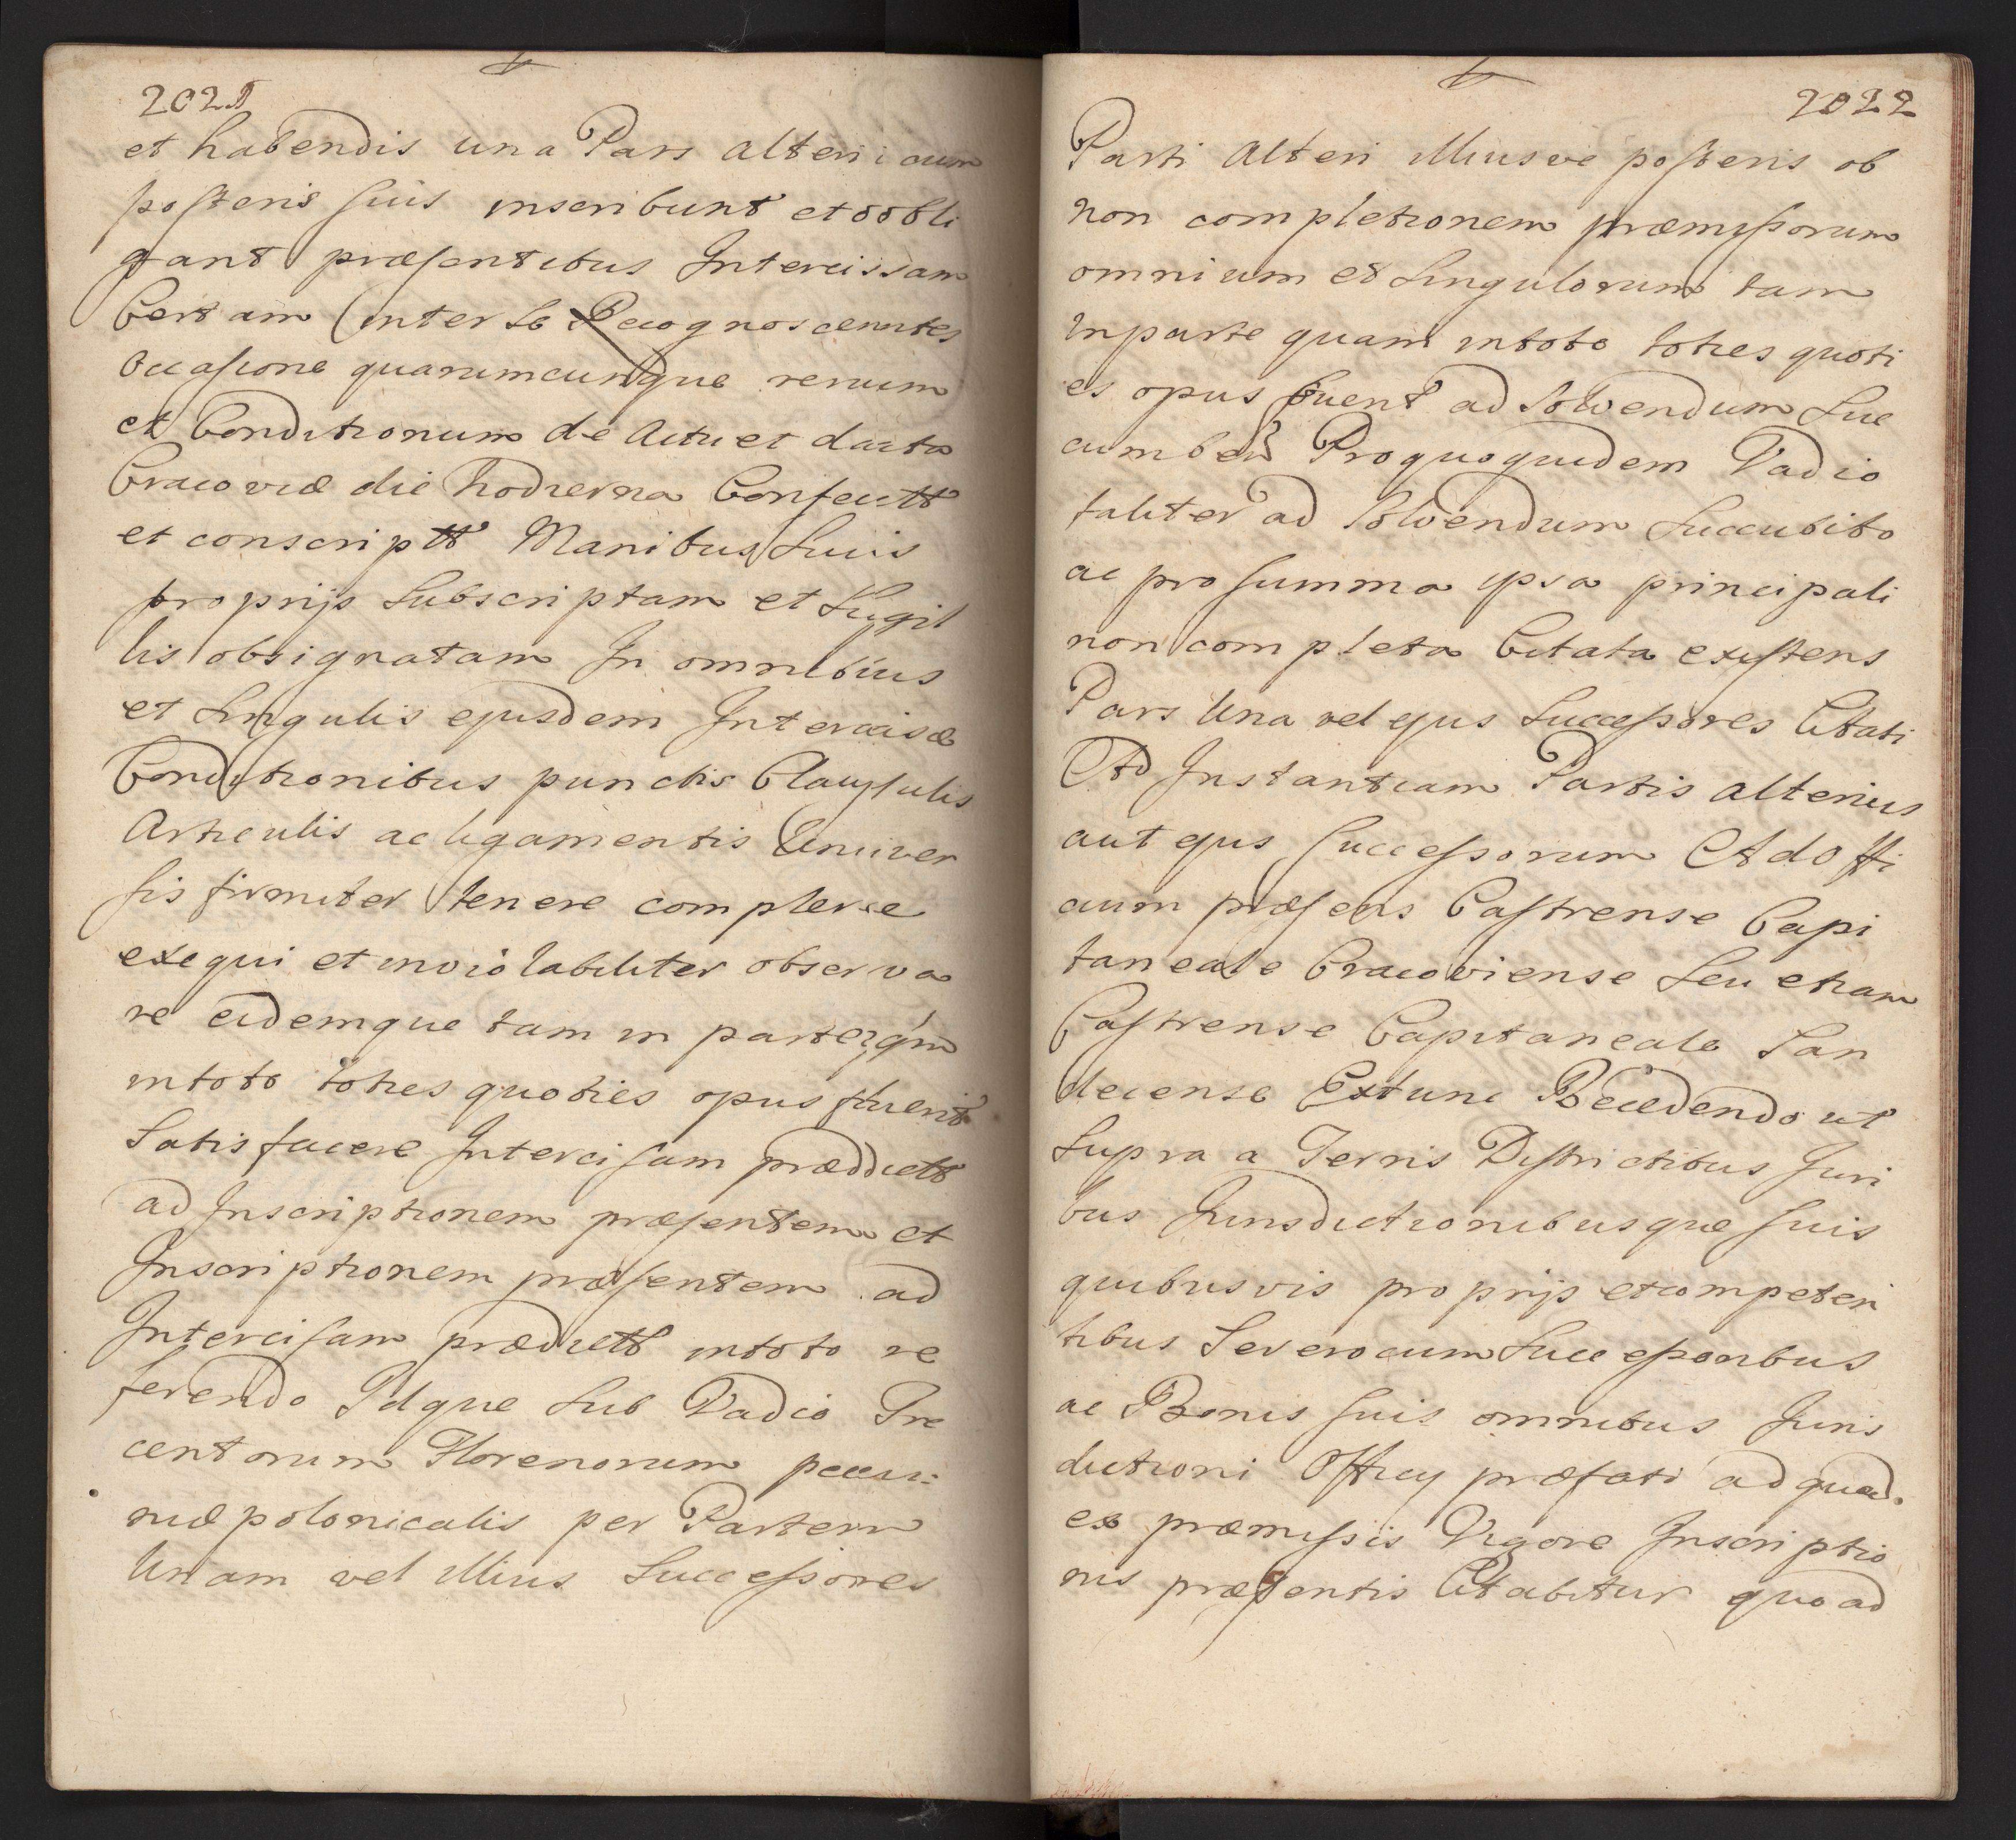 2021
et habendis una Pars alteri cum
posteris suis inscribunt et obli
gant præsentibus Intercissam
Certam inter se Recognoscentes
occasione quarumcunque rerum
et Conditionum de Actu et data
Cracoviæ die hodierna Confectt
et conscriptt Manibus Suis
proprijs Subscriptam et Sigil
lis obsignatam In omnibus
et Singulis ejusdem Intercisæ
Conditionibus punctis Clausulis
Articulis ac ligamentis Univer
sis firmiter tenere complere
exequi et inviolabiliter observa
re eidemque tam in parte qm
in toto toties quoties opus fuerit
Satisfacere Intercisam prædictt
ad Inscriptionem præsentem et
Inscriptionem præsentem ad
Intercisam prædictt in toto re
ferendo Idque Sub Vadio Tre
centorum Florenorum pecu:
niæ polonicalis per Partem
Unam vel illius Successores
2022
Parti Alteri illiusve posteris ob
non completionem præmissorum
omnium et Singulorum tam
in parte quam in toto toties quoti
es opus fuerit ad Solvendum Suc
cumben Pro quo quidem Vadio
taliter ad Solvendum Succubito
ac pro summa ipsa principali
non completa Citata existens
Pars Una vel ejus Successores Citati
Ad Instantiam Partis alterius
aut ejus Successorum Ad Offi
cium præsens Castrense Capi
taneale Cracoviense Seu etiam
Castrense Capitaneale San
decense Extunc Recedendo ut
Supra a Terris Districtibus Juri
bus Jurisdictionibusque suis
quibusvis proprijs et competen
tibus Se vero cum Successoribus
ac Bonis suis omnibus Juris
dictioni Officij præfati ad quod
ex præmissis Vigore Inscriptio
nis præsentis Citabitur quoad